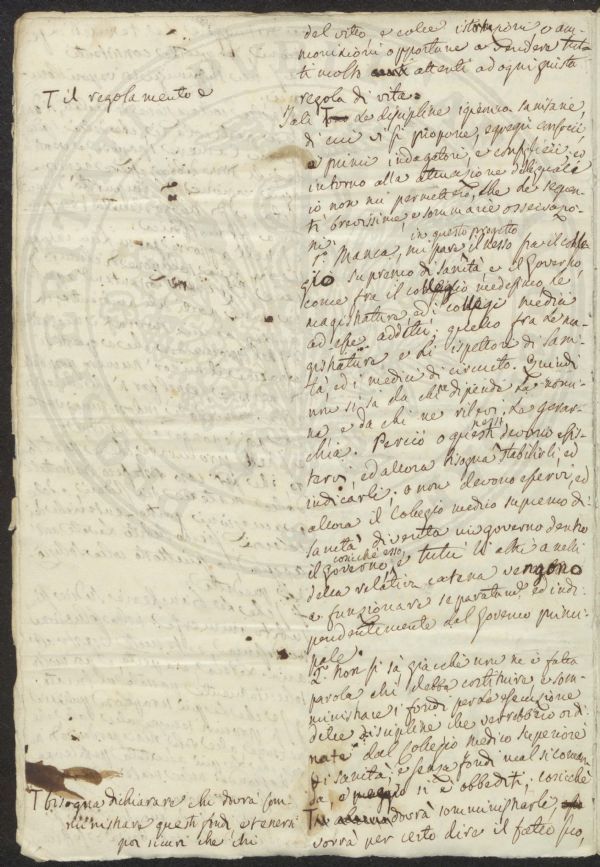 del vitto, e colle istruzioni o am-
monizioni opportune a rendere tut-
ti molto attenti ad ogni giusta
regola di vita.
T il regolamento e
Tali Le discipline igienico sanitarie,
di cui si propone, egregii
e primi indagatori, e
intorno alla attuazione delle quali
io non mi permetterò, che le seguen-
ti brevissime e sommarie osservazio-
ni.
in questo progetto
1.° Manca, mi pare il nesso fra il colle-
gio supremo di sanità, e il Governo,
come fra il collegio medesimo, le
magistrature ed i collegi medici
ad esse additti; quello fra le ma-
gistrature e gli ispettori di sani-
tà, ed i medici di circuito. Quindi
non si sa da chi ne dipenda la nomi-
na e da chi ne rilevi la gerar-
chia. Perciò o questi nessi devono esis-
tere, ed allora bisogna stabilirli, ed
indicarli; o non devono esservi, ed
allora il Collegio medico supremo di
sanità diventa un governo dentro
il governo, cosicchè esso e tutti gli altri anelli
della relativa catena vengono
a funzionare separatam. ed indi-
pendentemente dal Governo princi-
pale.
2.° Non si sà giacchè non ne è fatta
parola chi debba costituire e som-
ministrare i fondi per la esecuzione
delle discipline che verrebbero ordi-
nate dal Collegio medico superiore
di sanità, e senza fondi mal si coman-
da, e meglio si è obbediti; cosicchè
T bisogna dichiarare chi dovrà som-
ministrare questi fondi e tenersi
poi sicuri che chi
dovrà somministrarle,
vorrà per certo dire il fatto suo,